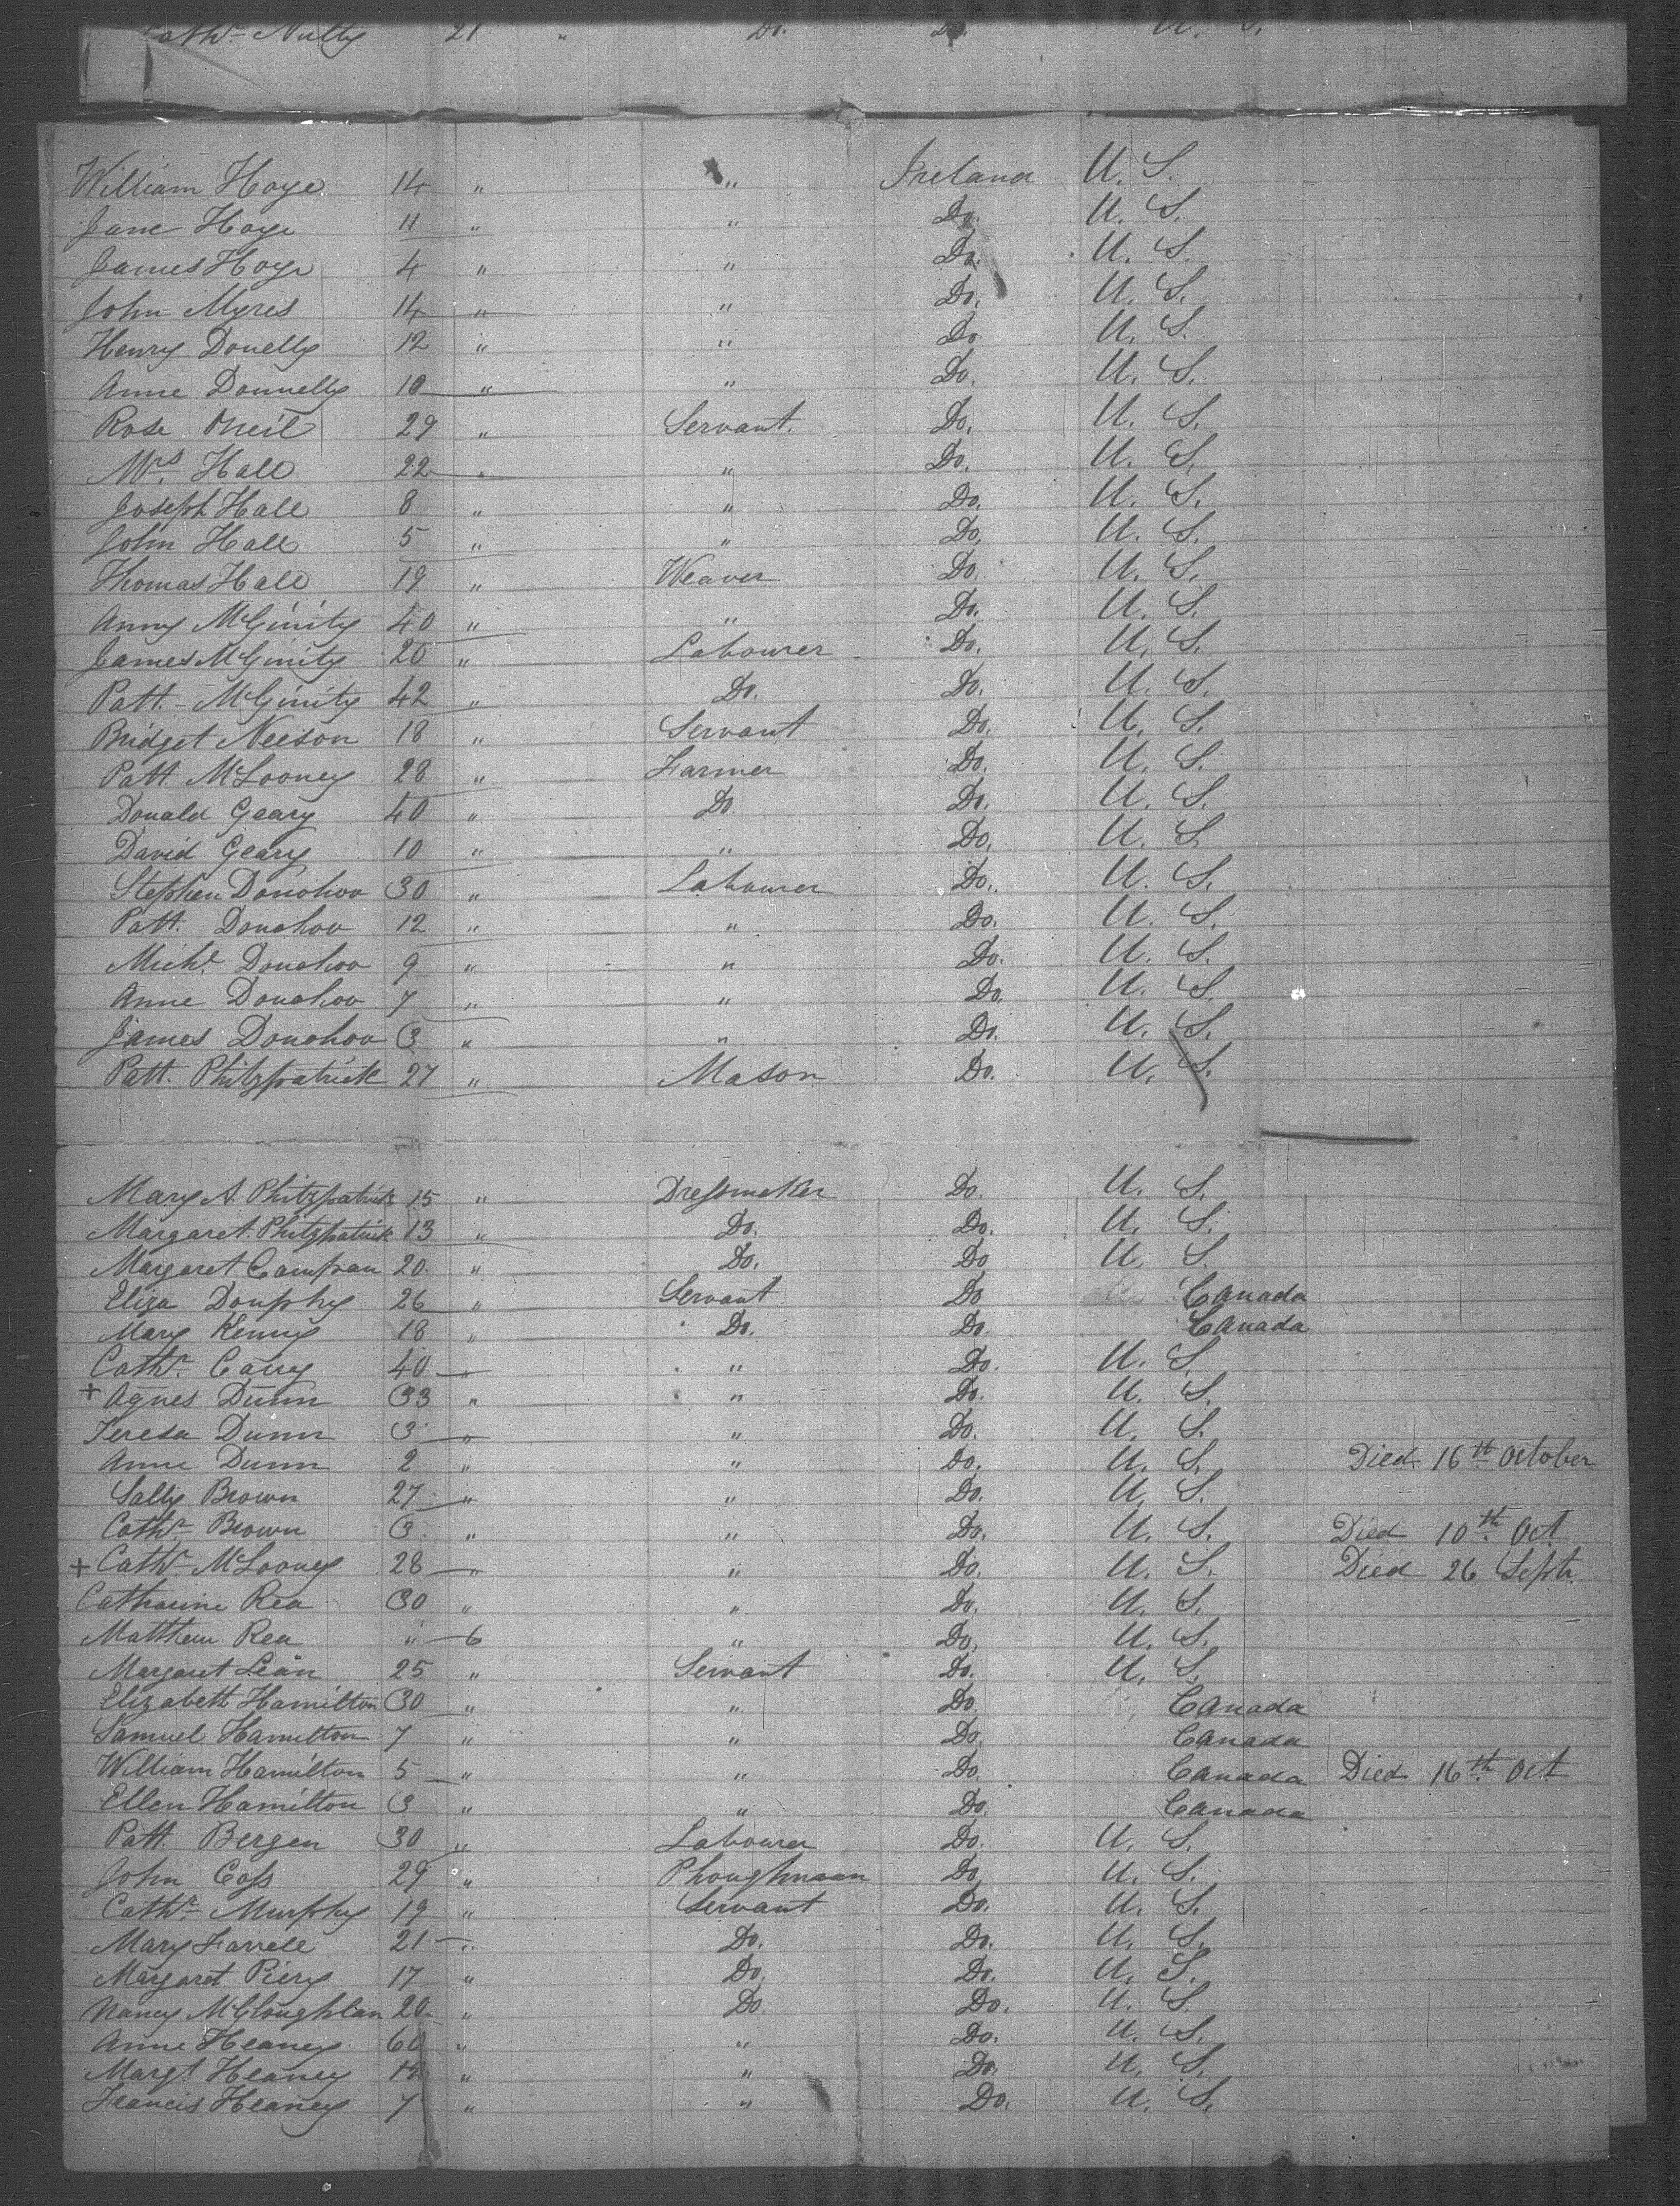 Cathr. Nulty 21 " Do. Do. U. S.
William Hoye 14 " " Ireland U. S.
Jane Hoye 11 " " Do. U. S.
James Hoye 4 " " Do. U. S.
John Myres 14 " " Do. U. S.
Henry Donelly 12 " " Do U. S.
Anne Donnelly 10 " " Do. U. S.
Rose Oneil 29 " Servant. Do. U. S.
Mrs. Hall 22 " " Do. U. S.
Joseph Hall 8 " " Do. U. S.
John Hall 5 " " Do. U. S.
Thomas Hall 19 " Weaver Do. U. S.
Anny McGinity 40 " " Do. U. S.
James McGinity 20 " Labourer Do. U. S.
Patt. McGinity 42 " Do. Do. U. S.
Bridget Neeson 18 " Servant Do. U. S.
Patt McLooney 28 " Farmer Do. U. S.
Donald Geary 40 " Do. Do. U. S.
David Geary 10 " " Do. U. S.
Stephen Donohoo 30 " Labourer Do. U. S.
Patt. Donohoo 12 " " Do. U. S.
Michl. Donohoo 9 " " Do. U. S.
Anne Donohoo 7 " " Do. U. S.
James Donohoo 3 " " Do. U. S.
Patt. Phitzpatrick 27 " Mason Do. U. S.
Mary A. Phitzpatrick 15 " Dressmaker Do. U. S.
Margaret Phitzpatrick 13 " Do. Do. U. S.
Margaret Campan 20 " Do. Do U. S.
Eliza Douphy 26 " Servant Do Canada
Mary Kenny 18 " Do. Do. Canada
Cathr. Carry 40 " " Do. U. S.
+ Agnes Dunn 33 " " Do. U. S.
Teresa Dunn 3 " " Do. U. S.
Anne Dunn 2 " " Do. U. S. Died 16th October
Sally Brown 27 " " Do. U. S.
Cathr. Brown 3 " " Do. U. S. Died 10th Oct
+ Cathr. McLooney 28 " " Do. U. S. Died 26 Sept.
Catharine Rea 30 " " Do. U. S.
Matthew Rea " 6 " Do. U. S.
Margaret Lean 25 " Servant Do. U. S.
Elizabeth Hamilton 30 " " Do Canada
Samuel Hamilton 7 " " Do Canada
William Hamilton 5 " " Do. Canada Died 16th Oct
Ellen Hamilton 3 " " Do. Canada
Patt. Bergen 30 " Labourer Do. U. S.
John Coss 29 " Phoughmaan Do. U. S.
Cathr. Murphy 19 " Servant Do. U. S.
Mary Farrell 21 " Do. Do. U. S.
Margaret Piery 17 " Do. Do. U. S.
Nancy McCloughlan 20 " Do. Do. U. S.
Anne Heaney 60 " " Do. U. S.
Margt. Heaney " " Do. U. S.
Francis Heaney 7 " " Do. U. S.